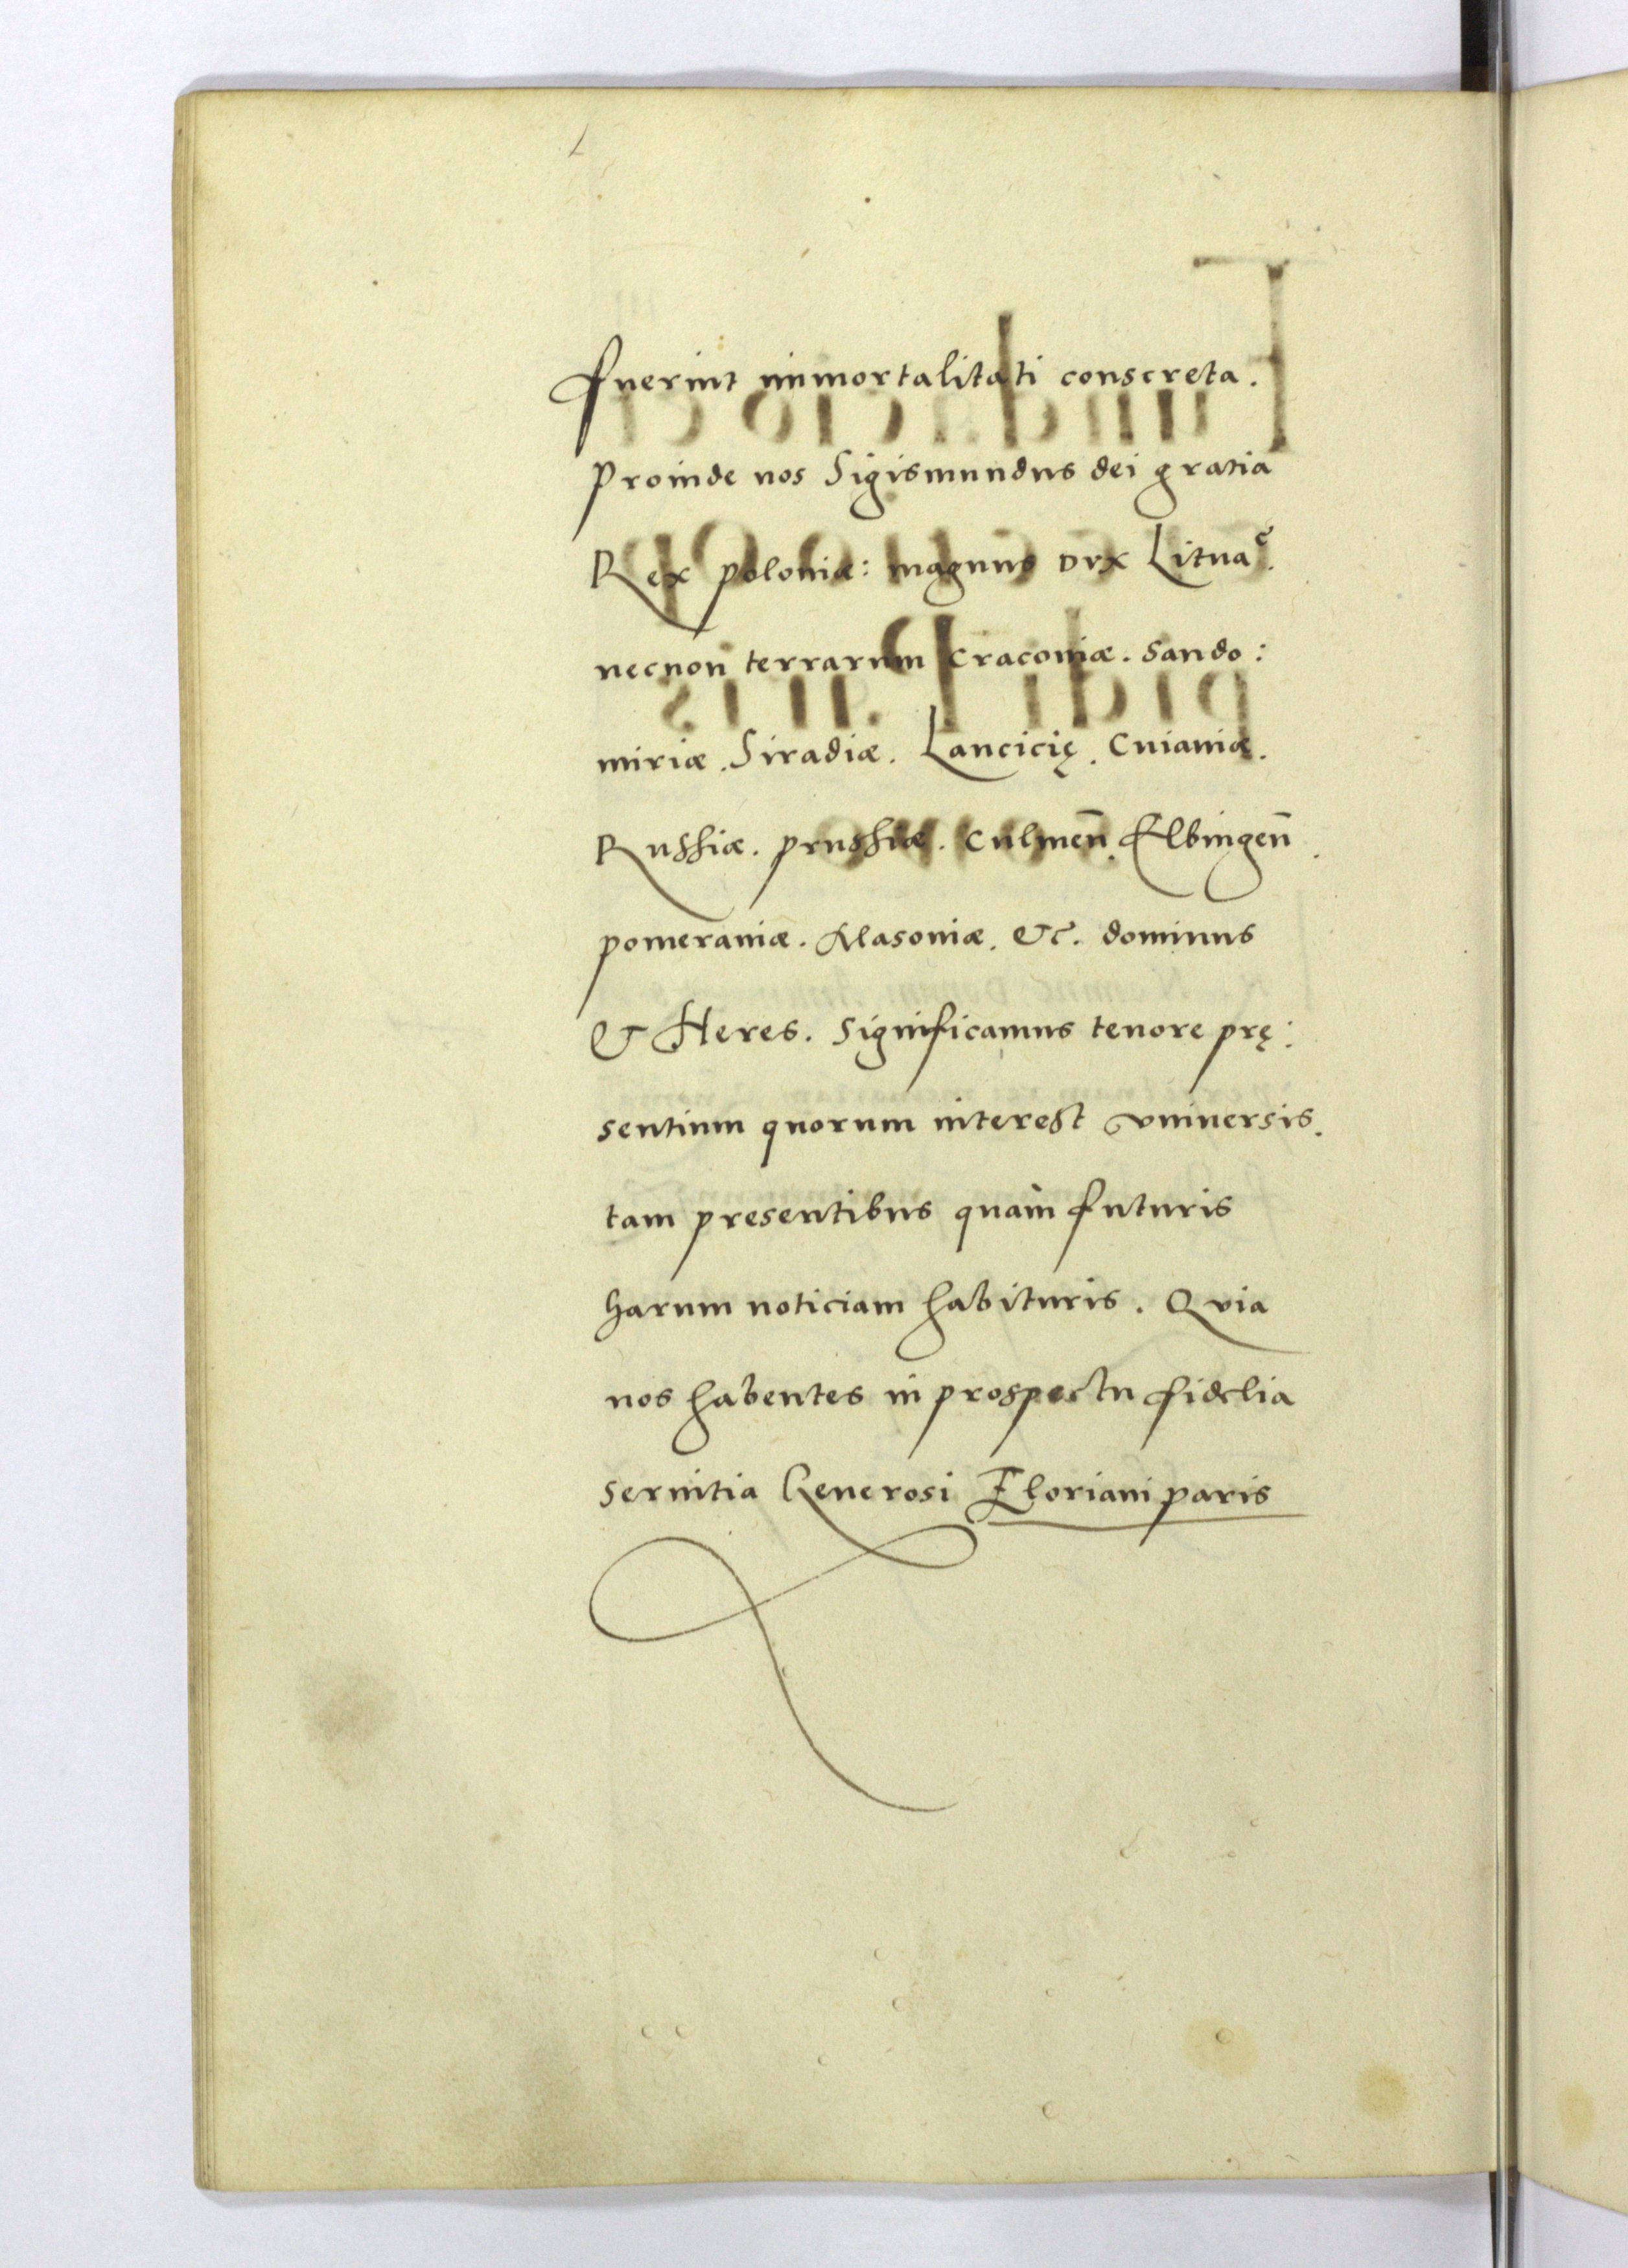 fuerint immortalitati conscreta.
Proinde nos Sigismundus dei gratia
Rex poloniæ: magnus Dvx Lituaͤ.
necnon terrarum Cracouiæ. Sando:
miriæ. Siradiæ. Lancicię. Cuiauiæ.
Russiæ. prussiæ. Culmen̄. Elbingen̄.
pomeraniæ. Masouiæ. &c. dominus
& Heres. Significamus tenore prę:
sentium quorum interest vniuersis.
tam presentibus quàm futuris
harum noticiam habituris. Qvia
nos habentes in prospectu fidelia
seruitia Generosi Floriani paris